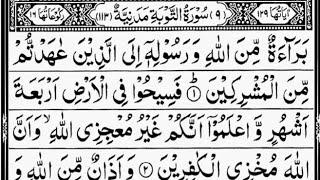 اٰیَاتُهَا ١٢٩ (٩) سُوْرَةُ التَّوْبَةِ مَدَنِیَّةٌ (١١٣) رُكُوْعَاتُهَا ١٦
بَرَآءَةٌ مِّنَ اللّٰهِ وَرَسُوْلِهٖۤ اِلَى الَّذِیْنَ عٰهَدْتُّمْ
مِّنَ الْمُشْرِكِیْنَ ① فَسِیْحُوْا فِی الْاَرْضِ اَرْبَعَةَ
اَشْهُرٍ وَّاعْلَمُوْۤا اَنَّكُمْ غَیْرُ مُعْجِزِی اللّٰهِ ۙ وَاَنَّ
اللّٰهَ مُخْزِی الْكٰفِرِیْنَ ② وَاَذَانٌ مِّنَ اللّٰهِ وَ